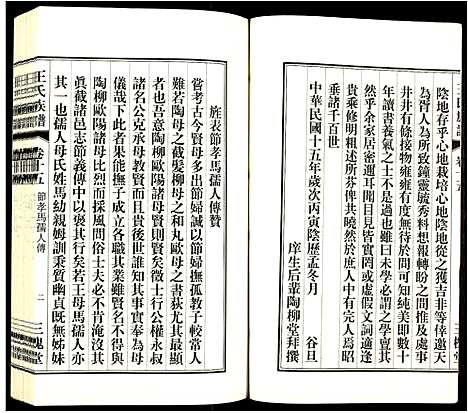 陰地存乎心地栽培心地陰地從之獲吉非等倖邀天
為胥人為所致鐘靈毓秀料想報轉盼之間推及處事
井井有條待物肫肫有雍容有度間可知純美即此十
年讀書養氣之士不是過也雖日務農業學者亦多
然乎余家居密邇耳聞目見皆實罔或虛假文詞適逢
貴乘修明良用欣然特於庶人中有一完人為昭
垂諸百世
中華民國十五年歲次丙寅陰歷孟冬月　穀旦
庠生后輩陶柳堂拜撰
王氏族譜
卷十五
節孝馬孺人傳
二
三槐堂
旌表節孝馬孺人傳贊
嘗考古今賢母多出節婦誠以節婦撫孤教子較常人
難若陶母之截髮柳母之和丸歐母之書荻尤其最顯
者也吾意陶柳歐陽諸母賢則賢矣微士行公權永叔
諸名公克承母教賢而且貴後世誰知其事實奉為母
儀哉下此者果能撫子成立各職其業雖賢名不得與
陶柳歐陽諸母比烈而採風問俗士夫必不肯淹沒其
真截諸邑志節義傳中以褒其行矣若王母馬孺人者
其一也孺人母氏姓馬幼親姆訓秉質幽貞既無姊妹